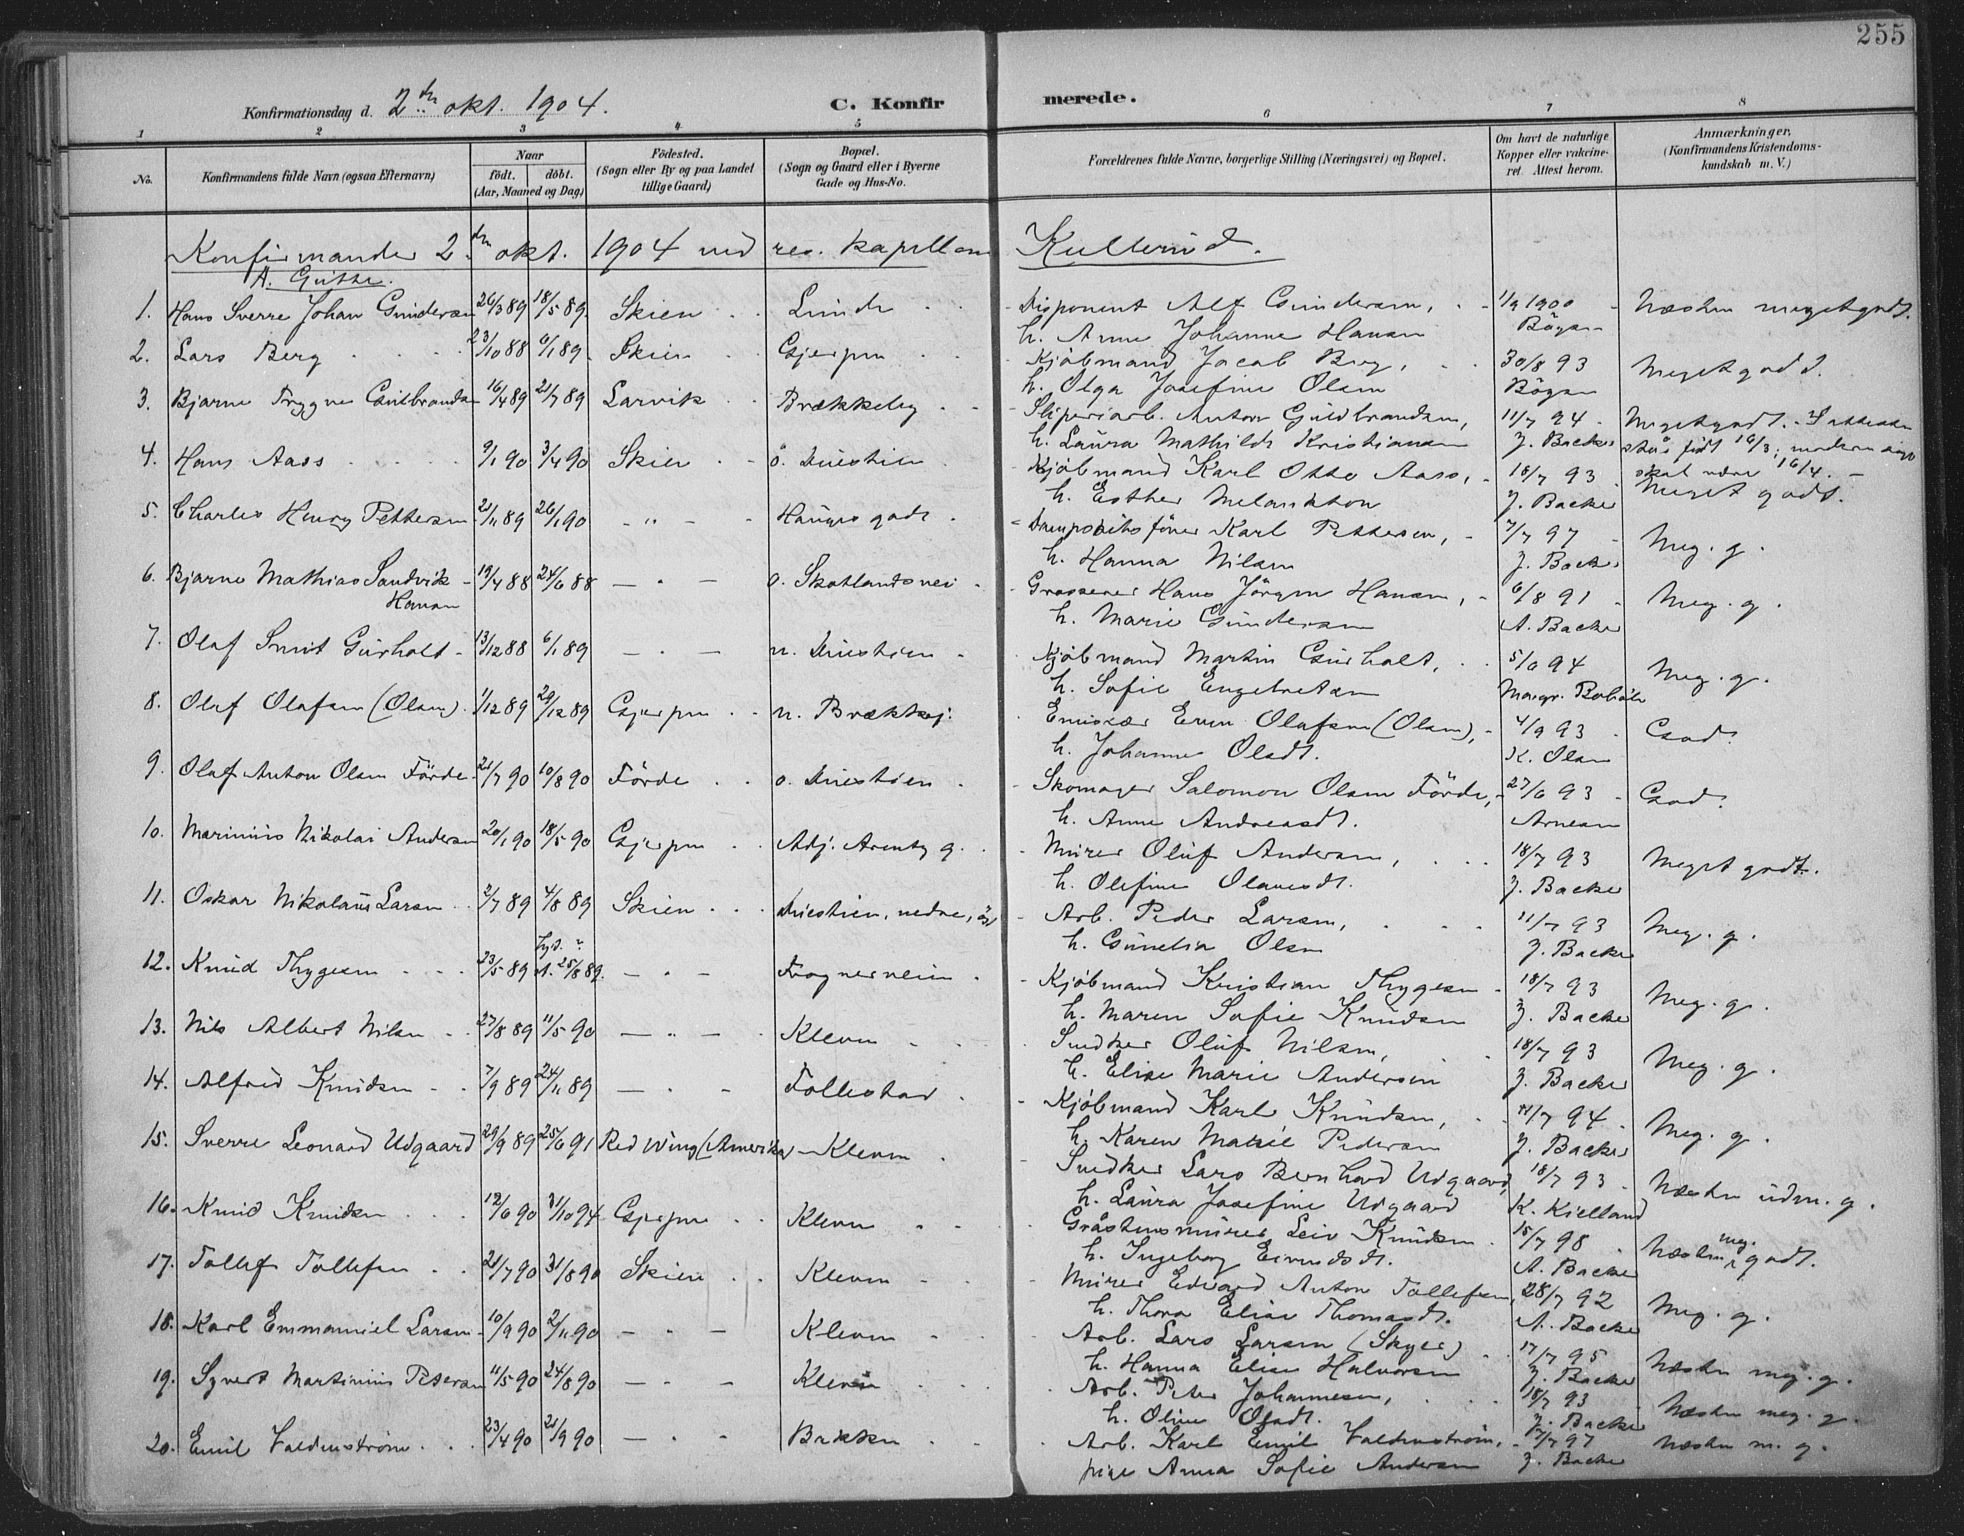 255
Konfirmationsdag d. 2den okt. 1904.
C. Konfirmerede.
1 2 3 4 5 6 7 8
No.
Konfirmandens fulde Navn (ogsaa Efternavn)
Naar
födt. döbt.
(Aar, Maaned og Dag)
Födested.
(Sogn eller By og paa Landet
tillige Gaard)
Bopæl.
(Sogn og Gaard eller i Byerne
Gade og Hus-No.
Forældrenes fulde Navne, borgerlige Stilling (Næringsvei) og Bopæl.
Om havt de naturlige
Kopper eller vakcine-
ret. Attest herom.
Anmærkninger.
(Konfirmandens Kristendoms-
kundskab m. V.)
Konfirmander 2den okt. 1904 ved res. kapellan Kullerud.
A. Gutter.
1. Hans Sverre Johan Gundersen 26/3 89 18/5 89 Skien Lunde Disponent Alf Gundersen, 1/9 1900 Næsten meget godt.
h. Anne Johanne Hansen Bögen
2. Lars Berg 23/10 88 6/1 89 Skien Gjerpen Kjøbmand Jacob Berg, 30/8 93 Meget godt.
h. Olga Josefine Olsen Bögen
3. Bjarne Trygve Guldbrandsen 16/4 89 21/7 89 Larvik Brækkeby Sliperiarb. Anton Guldbrandsen, 11/7 94 Meget godt. - I attesten
h. Laura Mathilde Kristiansen J. Backer står födt 16/3; moderen siger
4. Hans Aass 9/1 90 3/4 90 Skien ö. Duestien Kjøbmand Karl Otto Aass, 18/7 93 skal være 16/4. -
h. Esther Melankton J. Backer Meget godt.
5. Charles Henry Pettersen 21/11 89 26/1 90 - " - Hauges gade Dampskibsförer Karl Pettersen, 7/7 97 Meg. g.
h. Hanna Nilsen J. Backer
6. Bjarne Mathias Sandvik 19/4 88 24/6 88 - " - o. Skotlandsvei Grosserer Hans Jörgen Hansen, 6/8 91 Meg. g.
Hansen h. Marie Gundersen A. Backer
7. Olaf Smit Gurholt 13/12 88 6/1 89 - " - n. Duestien Kjøbmand Martin Gurholt, 5/6 94 Meg. g.
h. Sofie Engebretsen Margr.
8. Olaf Olafsen (Olsen) 1/12 89 29/12 89 Gjerpen n. Brækkej: Emissær Even Olafsen (Olsen), 4/9 93 God.
h. Johanne Olsdt. K. Olsen
9. Olaf Anton Olsen Förde 21/7 90 10/8 90 Förde o. Duestien Skomager Salomon Olsen Förde, 27/6 93 God.
h. Anne Andreasdt. Arnesen
10. Marinius Nikolai Andersen 20/1 90 18/5 90 Gjerpen Adj. Arentz g. Murer Oluf Andersen, 18/7 93 Meget godt.
h. Olefine Olavesdt. J. Backer
11. Oskar Nikolaus Larsen 2/7 89 4/8 89 Skien Duestien, nedre, ös Arb. Peder Larsen, 11/7 93 Meg. g.
h. Gunelia Olsen J. Backer
12. Knud Thygesen 23/5 89 25/8 89 - " - Frognerveien Kjøbmand Kristian Thygesen 18/7 93 Meg. g.
h. Maren Sofie Knudsen J. Backer
13. Nils Albert Nilsen 27/8 89 11/5 90 - " - Kleven Snedker Oluf Nilsen, 18/7 93 Meg. g.
h. Elise Marie Andersen J. Backer
14. Alfred Knudsen 7/9 89 24/11 89 - " - Follestad Kjøbmand Karl Knudsen, 11/7 94 Meg. g.
h. Karen Marie Pedersen J. Backer
15. Sverre Leonard Udgaard 29/9 89 25/6 91 Red Wing (Amerika) Kleven Snedker Lars Bernhard Udgaard, 18/7 93 Næsten udm. g.
h. Laura Josefine Udgaard K. Kielland
16. Knud Knudsen 12/6 90 31/10 94 Gjerpen Kleven Gråstensmurer Leiv Knudsen 15/7 98 Næsten meg. godt.
h. Ingeborg Eivindsdt. A. Backer
17. Tollef Tollefsen 21/7 90 31/8 90 Skien Kleven Murer Edvard Anton Tollefsen, 28/7 92 Meg. g.
h. Thora Elise Thomasdt. A. Backer
18. Karl Emmanuel Larsen 10/9 90 2/11 90 - " - Kleven Arb. Lars Larsen (Skyer) 17/7 95 Næsten meg. g.
h. Hanna Elise Halvorsen J. Backer
19. Syvert Martinius Petersen 11/5 90 24/8 90 - " - Kleven Arb. Peter Johannesen, 18/7 93 Næsten meg. g.
h. Oline Olsdt. J. Backer
20. Emil Valdenström 23/4 90 21/9 90 - " - Bakken Arb. Karl Emil Valdenström, 17/7 97 Næsten m. g.
pige Anna Sofie Andersen J. Backer